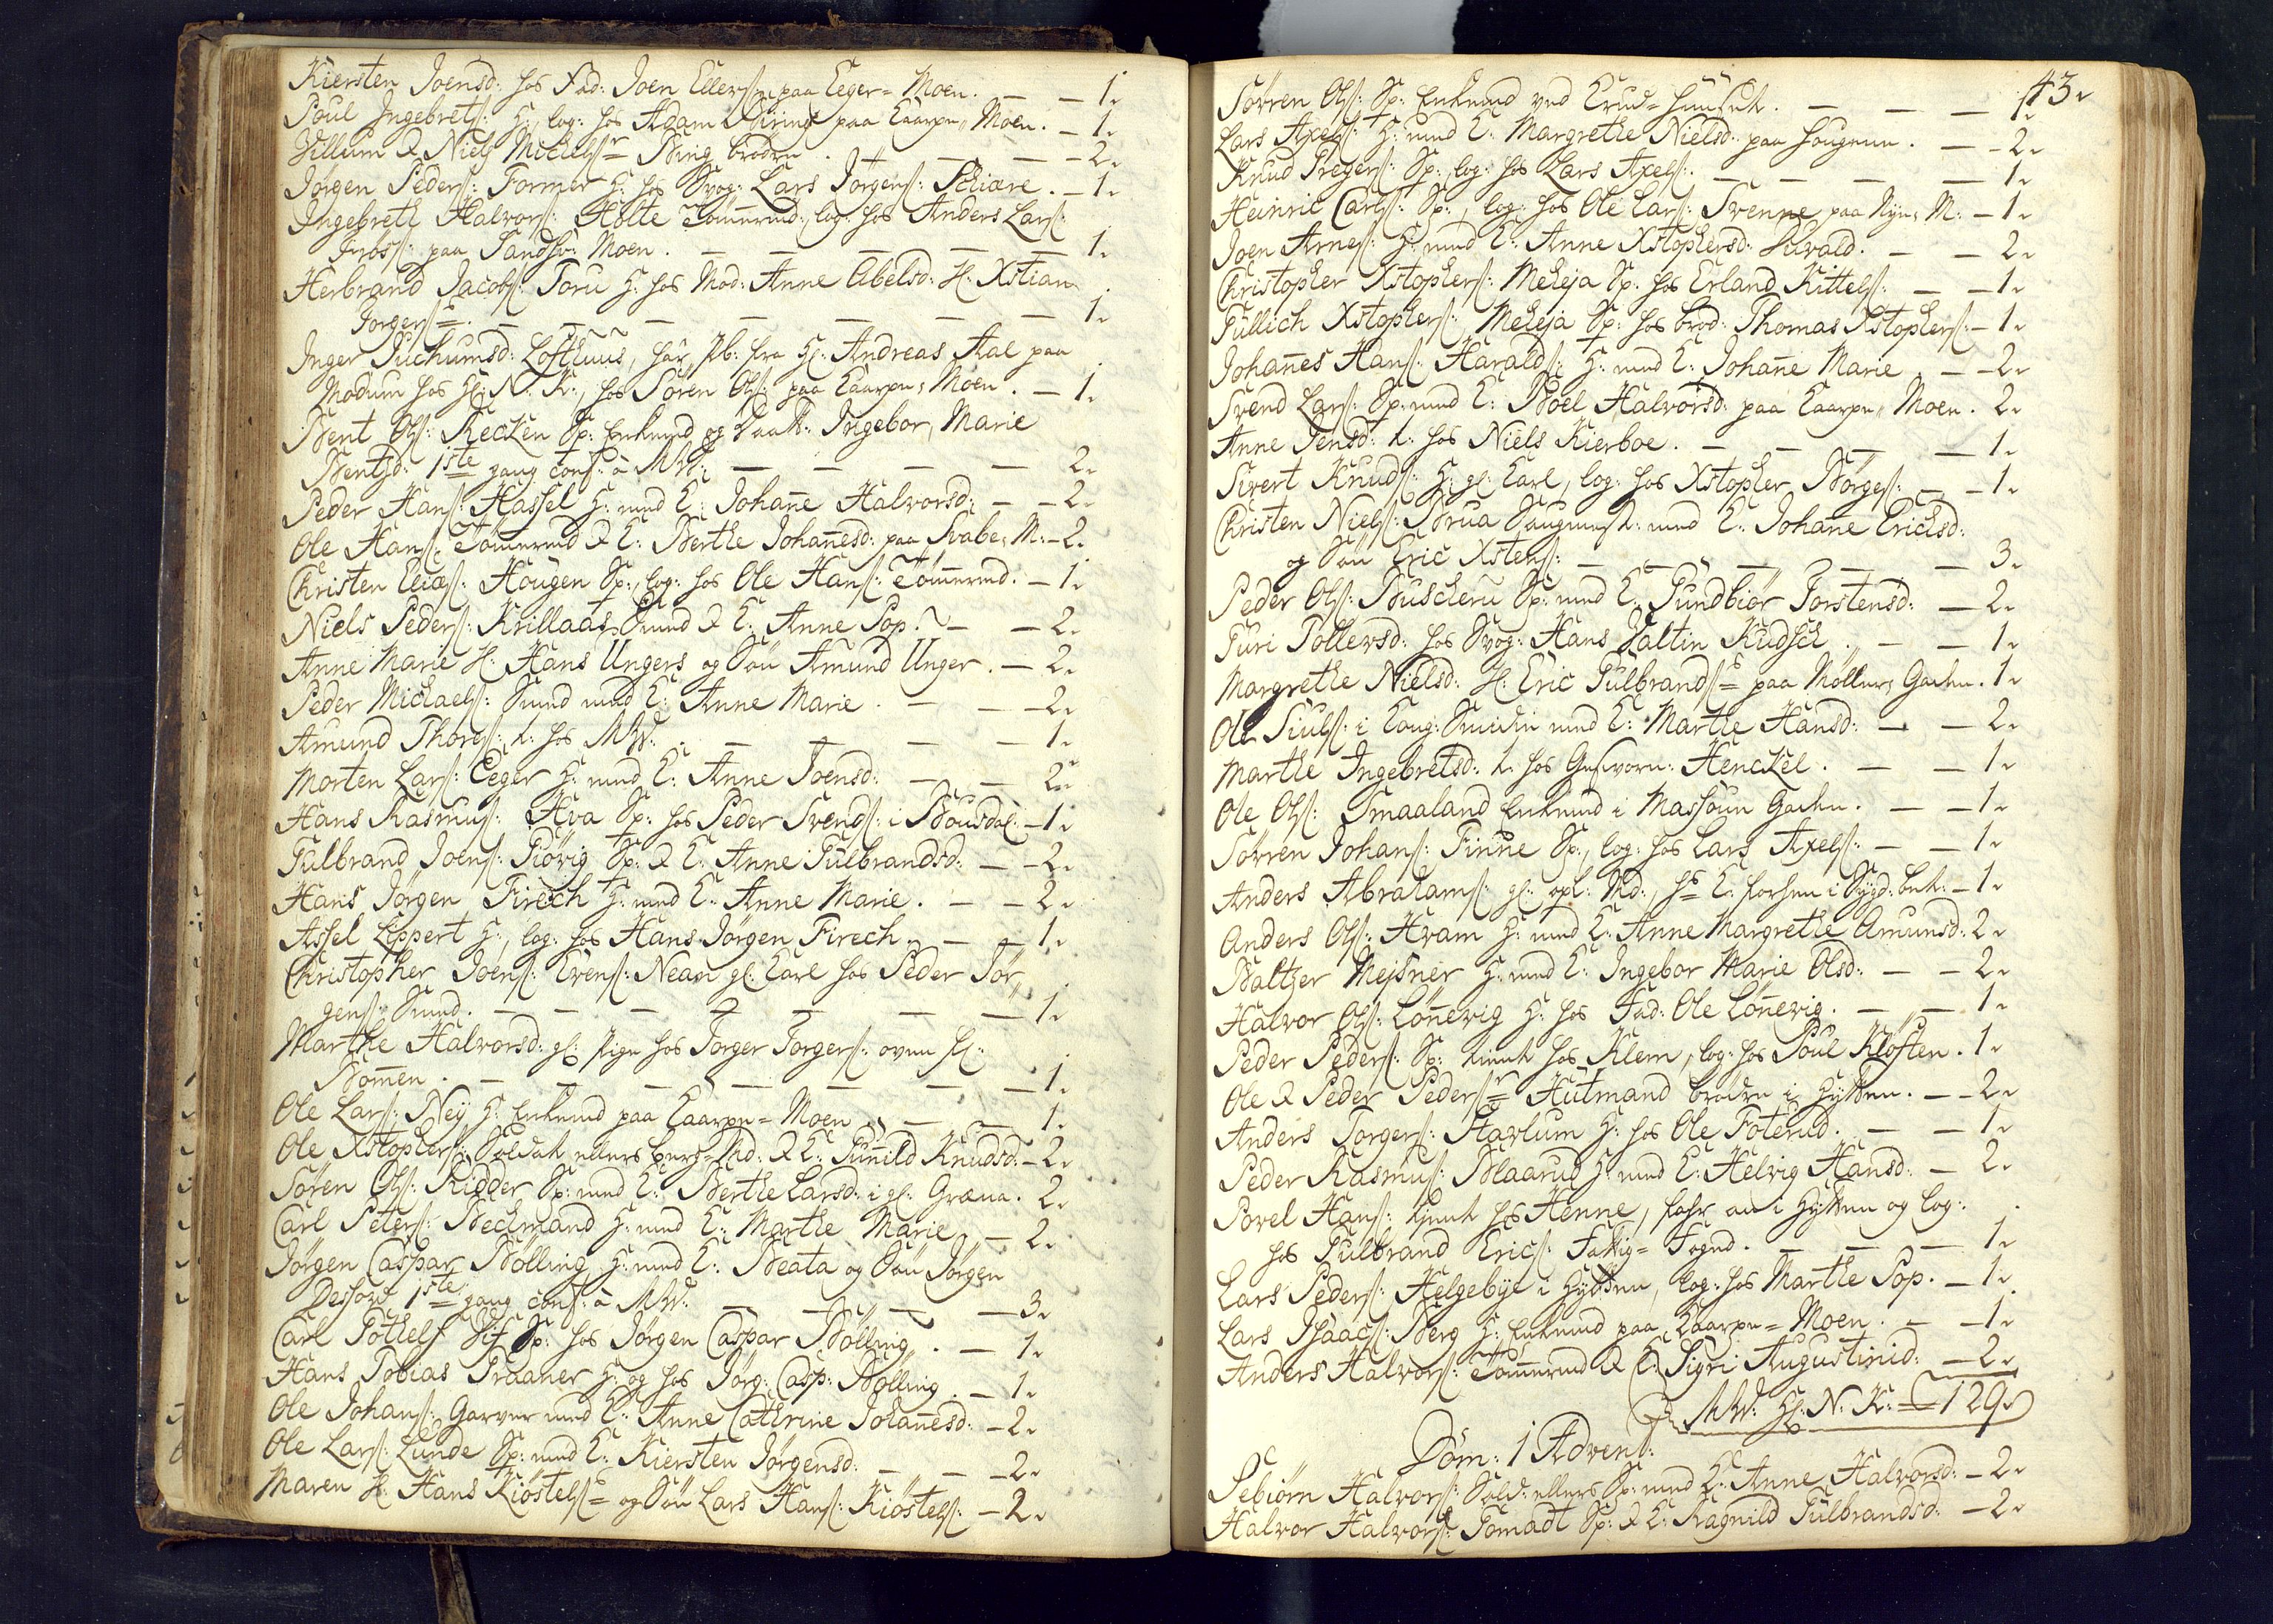 Kiersten Joensd: hos Fad: Joen Ellers: paa Eeger=Moen. — — 1.
Poul Ingebrets: H:, log: hos Adam Düring paa Taarpe=Moen. — 1.
Villum & Niels Michels: Bing brødre. — — — 2.
Jörgen Peders: Former H: hos Svog: Lars Jörgens: Schiære. — 1.
Ingebreth Halvors: Holte Tömermd:, log: hos Anders Lars:
paa Sandsv: Moen. — — — — — 1.
Herbrand Jacobs: Toru H: hos Mod: Anne Abelsd: H: Xstian
Jorgens: — — — — — — 1.
Inger Guthumsd: Lofthuus, har Pb: fra Hr: Andreas Aal paa
Modum hos Hr: N: K:, hos Sören Ols: paa Taarpe=Moen. — 1.
Bent Ols: Recken Sp: Enkemd og Daatt: Ingebor Marie
Bentsd: 1ste gang conf: à MW: — — — — 2.
Peder Hans: Hassel H: med E: Johañe Halvorsd: — — 2.
Ole Hans: Tömermd & E: Berthe Johañesd: paa Svabe=M: — 2.
Christen Elias: Hougen Sp:, log: hos Ole Hans: Tömermd. — 1.
Niels Peders: Krillaas Smed & E: Anne Sop. — — 2.
Anne Marie H: Hans Ungers og Sön Amund Unger. — 2.
Peder Michaels: Smed med E: Anne Marie. — — 2.
Amund Thors: t: hos MW: — — — — 1.
Morten Lars: Eeger H: med E: Anne Joensd: — — 2.
Hans Rasmus: Hva Sp: hos Peder Svends: i Bousdal: — 1.
Gulbrand Joens: Giövig Sp: & E: Anne Gulbrandsd: — — 2.
Hans Jörgen Firech H: med E: Anne Marie. — — 2.
Assel Lippert H:, log: hos Hans Jörgen Firech. — — 1.
Christopher Joens: Evens: Nean gl: Karl hos Peder Jör,,
gens: Smed. — — — — — — 1.
Marthe Halvorsd: gl: Pige hos Torger Torgers: oven f:
Bommen. — — — — — — 1.
Ole Lars: Ney H: Enkemd paa Taarpe=Moen — — 1.
Ole Xstophers: Soldat ellers berg=Md: & E: Guñild Knudsd: — 2.
Sören Ols: Ridder Sp: med E: Berthe Larsd: i gl: Gruva. 2.
Carl Peters: Beckmand H: med E: Marthe Marie — 2.
Jörgen Caspar Bölling H: med E: Beata og Sön Jörgen
1ste gang conf: à MW: — — — — 3.
Carl Gothelf Sp: hos Jörgen Caspar Bölling. — 1.
Hans Tobias Graaner H: og hos Jörg: Casp: Bölling. — 1.
Ole Johans: Garver med E: Anne Cathrine Johañesd: — 2.
Ole Lars: Lunde Sp: med E: Kiersten Jörgensd: — — 2.
Maren H: Hans Kiöstels: og Sön Lars Hans: Kiöstels: — 2.
43.
Sörren Ols: Sp: Enkemd ved — — — 1.
Lars Axels: H: med E: Margrethe Nielsd: paa Hougene. — 2.
Knud Gregers: Sp:, log: hos Lars Axels: — — — — 1.
Heinric Carls: Sp:, log: hos Ole Lars: Svenne paa Nye=M: — 1.
Joen Arnes: H: med E: Anne Xstophersd: — — 2.
Christopher Xstophers: Meheja Sp: hos Erland Kittels: — — 1.
Gullich Xstophers: Meheja Sp: hos brod: Thomas Xstophers: — 1.
Johañes Hans: Haralds: H: med E: Johañe Marie — — 2.
Svend Lars: Sp: med E: Boel Halvorsd: paa Taarpe=Moen. 2.
Anne Jensd: t: hos Niels Kierboe. — — — — 1.
Sivert Knuds: H: gl: Karl, log: hos Xstopher Börges: — — 1.
Christen Niels: Brua med E: Johañe Erichsd:
og Sön Eric Xstens: — — — — — 3.
Peder Ols: Buscheru Sp: med E: Gundbiör Torstensd: — 2.
Turi Tollevsd: hos Svog: Hans Valtin Kudsch — — 1.
Margrethe Nielsd: H: Eric Gulbrands: paa Möller=Gaden. 1.
Ole Siuls: i Kong: Smedie med E: Marthe Hansd: — — 2.
Marthe Ingebretsd: t: hos Gesvorn: Henckel. — — 1.
Ole Ols: Smaaland Enkemd i Masovn Gaden. — — 1.
Sörren Johans: Finne Sp:, log: hos Lars Axels: — — 1.
Anders Abrahams: gl: opl: Md:, E: i — 1.
Anders Ols: Hvam H: med E: Anne Margrethe Amunsd: 2.
Baltzer Meisner H: med E: Ingebor Marie Olsd: — — 2.
Halvor Ols: Löñevig H: hos Fad: Ole Löñevig. — — 1.
Peder Peders: Sp: tient hos Klem, log: hos Poul Klosten. 1.
Ole & Peder Peders: Hutmand brödre i Hytten. — — 2.
Anders Torgers: Starlum H: hos Ole Foterud. — — 1.
Peder Rasmus: Blaarud H: med E: Helvig Hansd: — 2.
Povel Hans: tient hos Henne, i Hytten og log:
hos Gulbrand Erics: Fattig=Foged. — — — 1.
Lars Peders: Helgebye i Hytten, log: hos Marthe Sop. — 1.
Lars Isaacs: Berg H: Enkemd paa Taarpe=Moen. — — 1.
Anders Halvors: Tömermd & E: Sigri Augustinid: — 2.
MW: Hr: N: K: = 129.
Dom: 1 Advent:
Gebiörn Halvors: Sold: ellers Sp: med E: Anne Halvorsd: — 2.
Halvor Halvors: Tomadt Sp: & E: Ragnild Gulbrandsd: — 2.